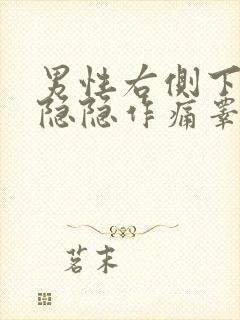 男性右侧下
隐隐作痛睾
茗末